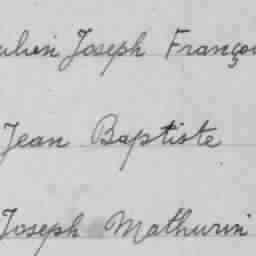 Joseph François
Jean Baptiste
Joseph Mathurin